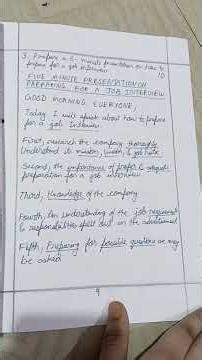 3. Prepare a 5-minute presentation on how to
prepare for a job interview 10
FIVE MINUTE PRESENTATION ON
PREPARING FOR A JOB INTERVIEW
GOOD MORNING EVERYONE,
Today I will speak about how to prepare
for a job interview
First, research the company thoroughly
Understand its mission, &
Second, the importance of proper & adequate
preparation for a job interview
Third, Knowledge of the company
Fourth, An understanding of the job requirement
& responsibilities spelt out in the advertisement
Fifth, Preparing for possible questions we may
be asked